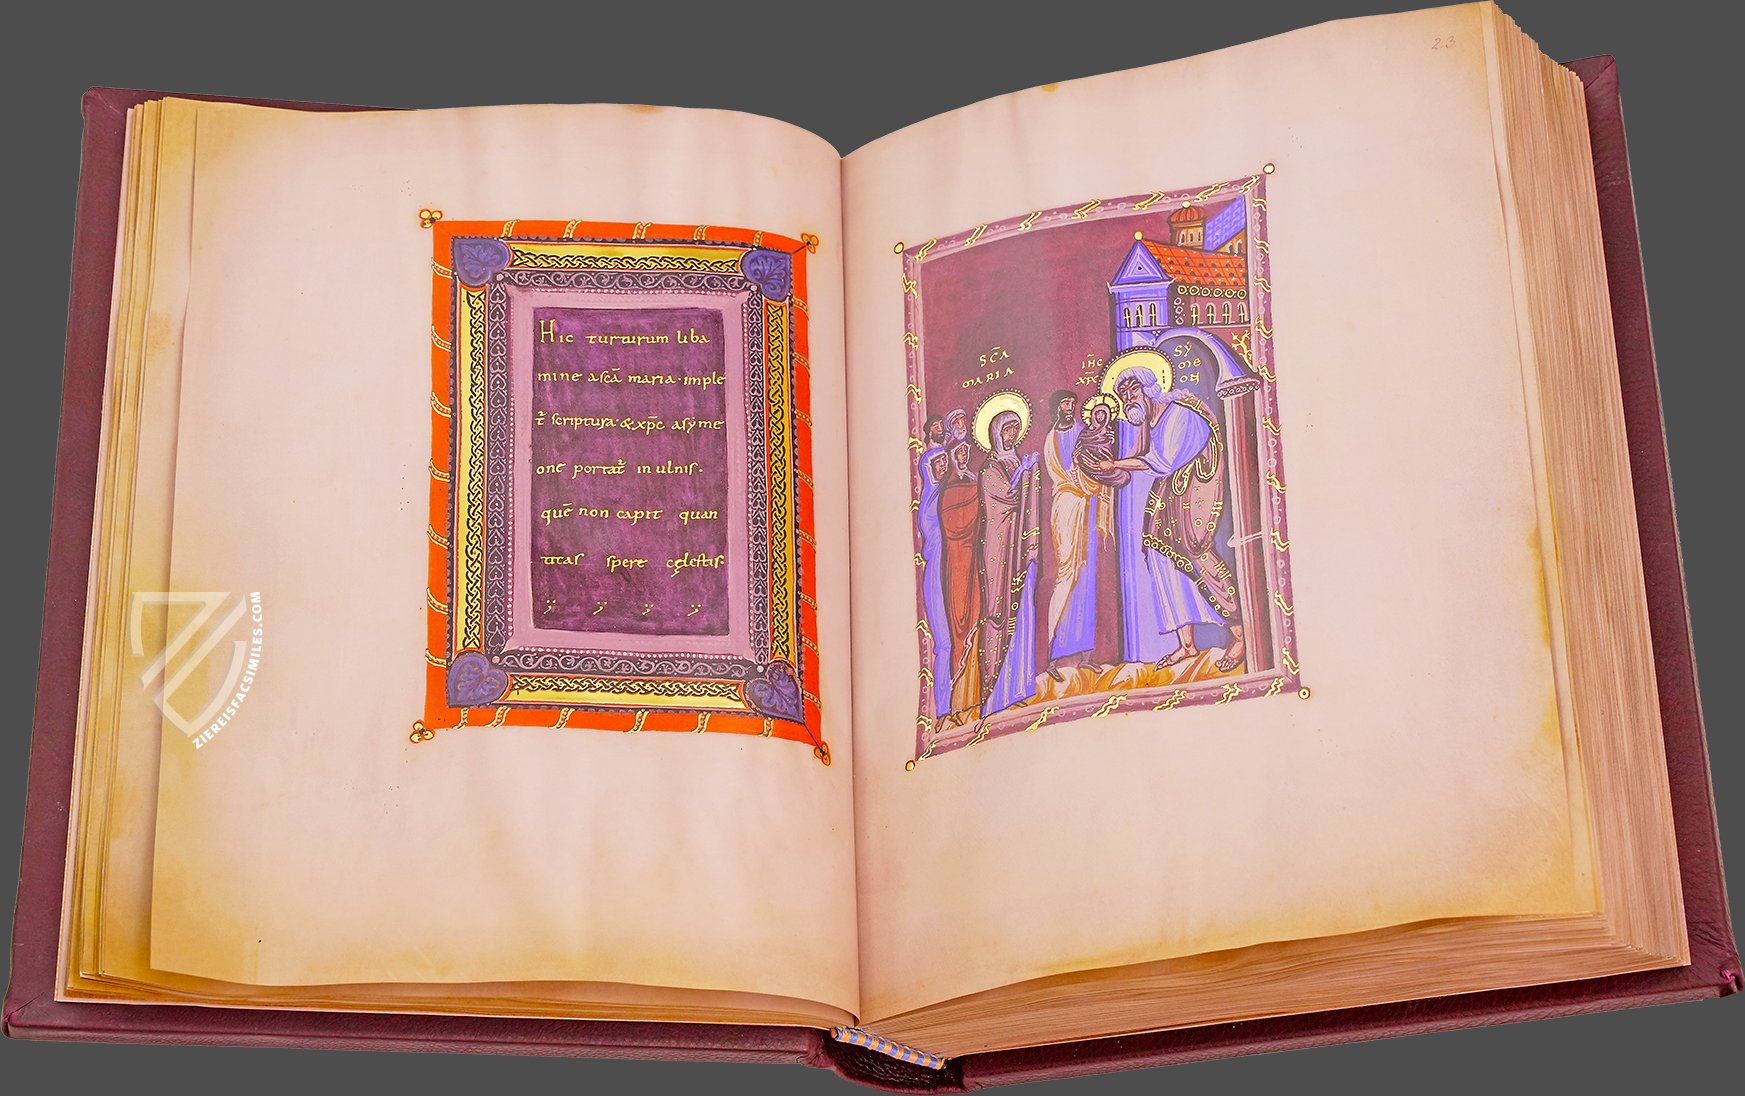 Hic turturum liba
mine a scā maria· imple
t᷑ scriptura· & xp̄c a sẏme
one portat᷑ in ulnis·
quē non capit quan
titas sperę cęlestis·
SC̄A
MARIA
IH̄C
XP̄C
SẎ
ME
ON
23
ZIEREISFACSIMILES.COM